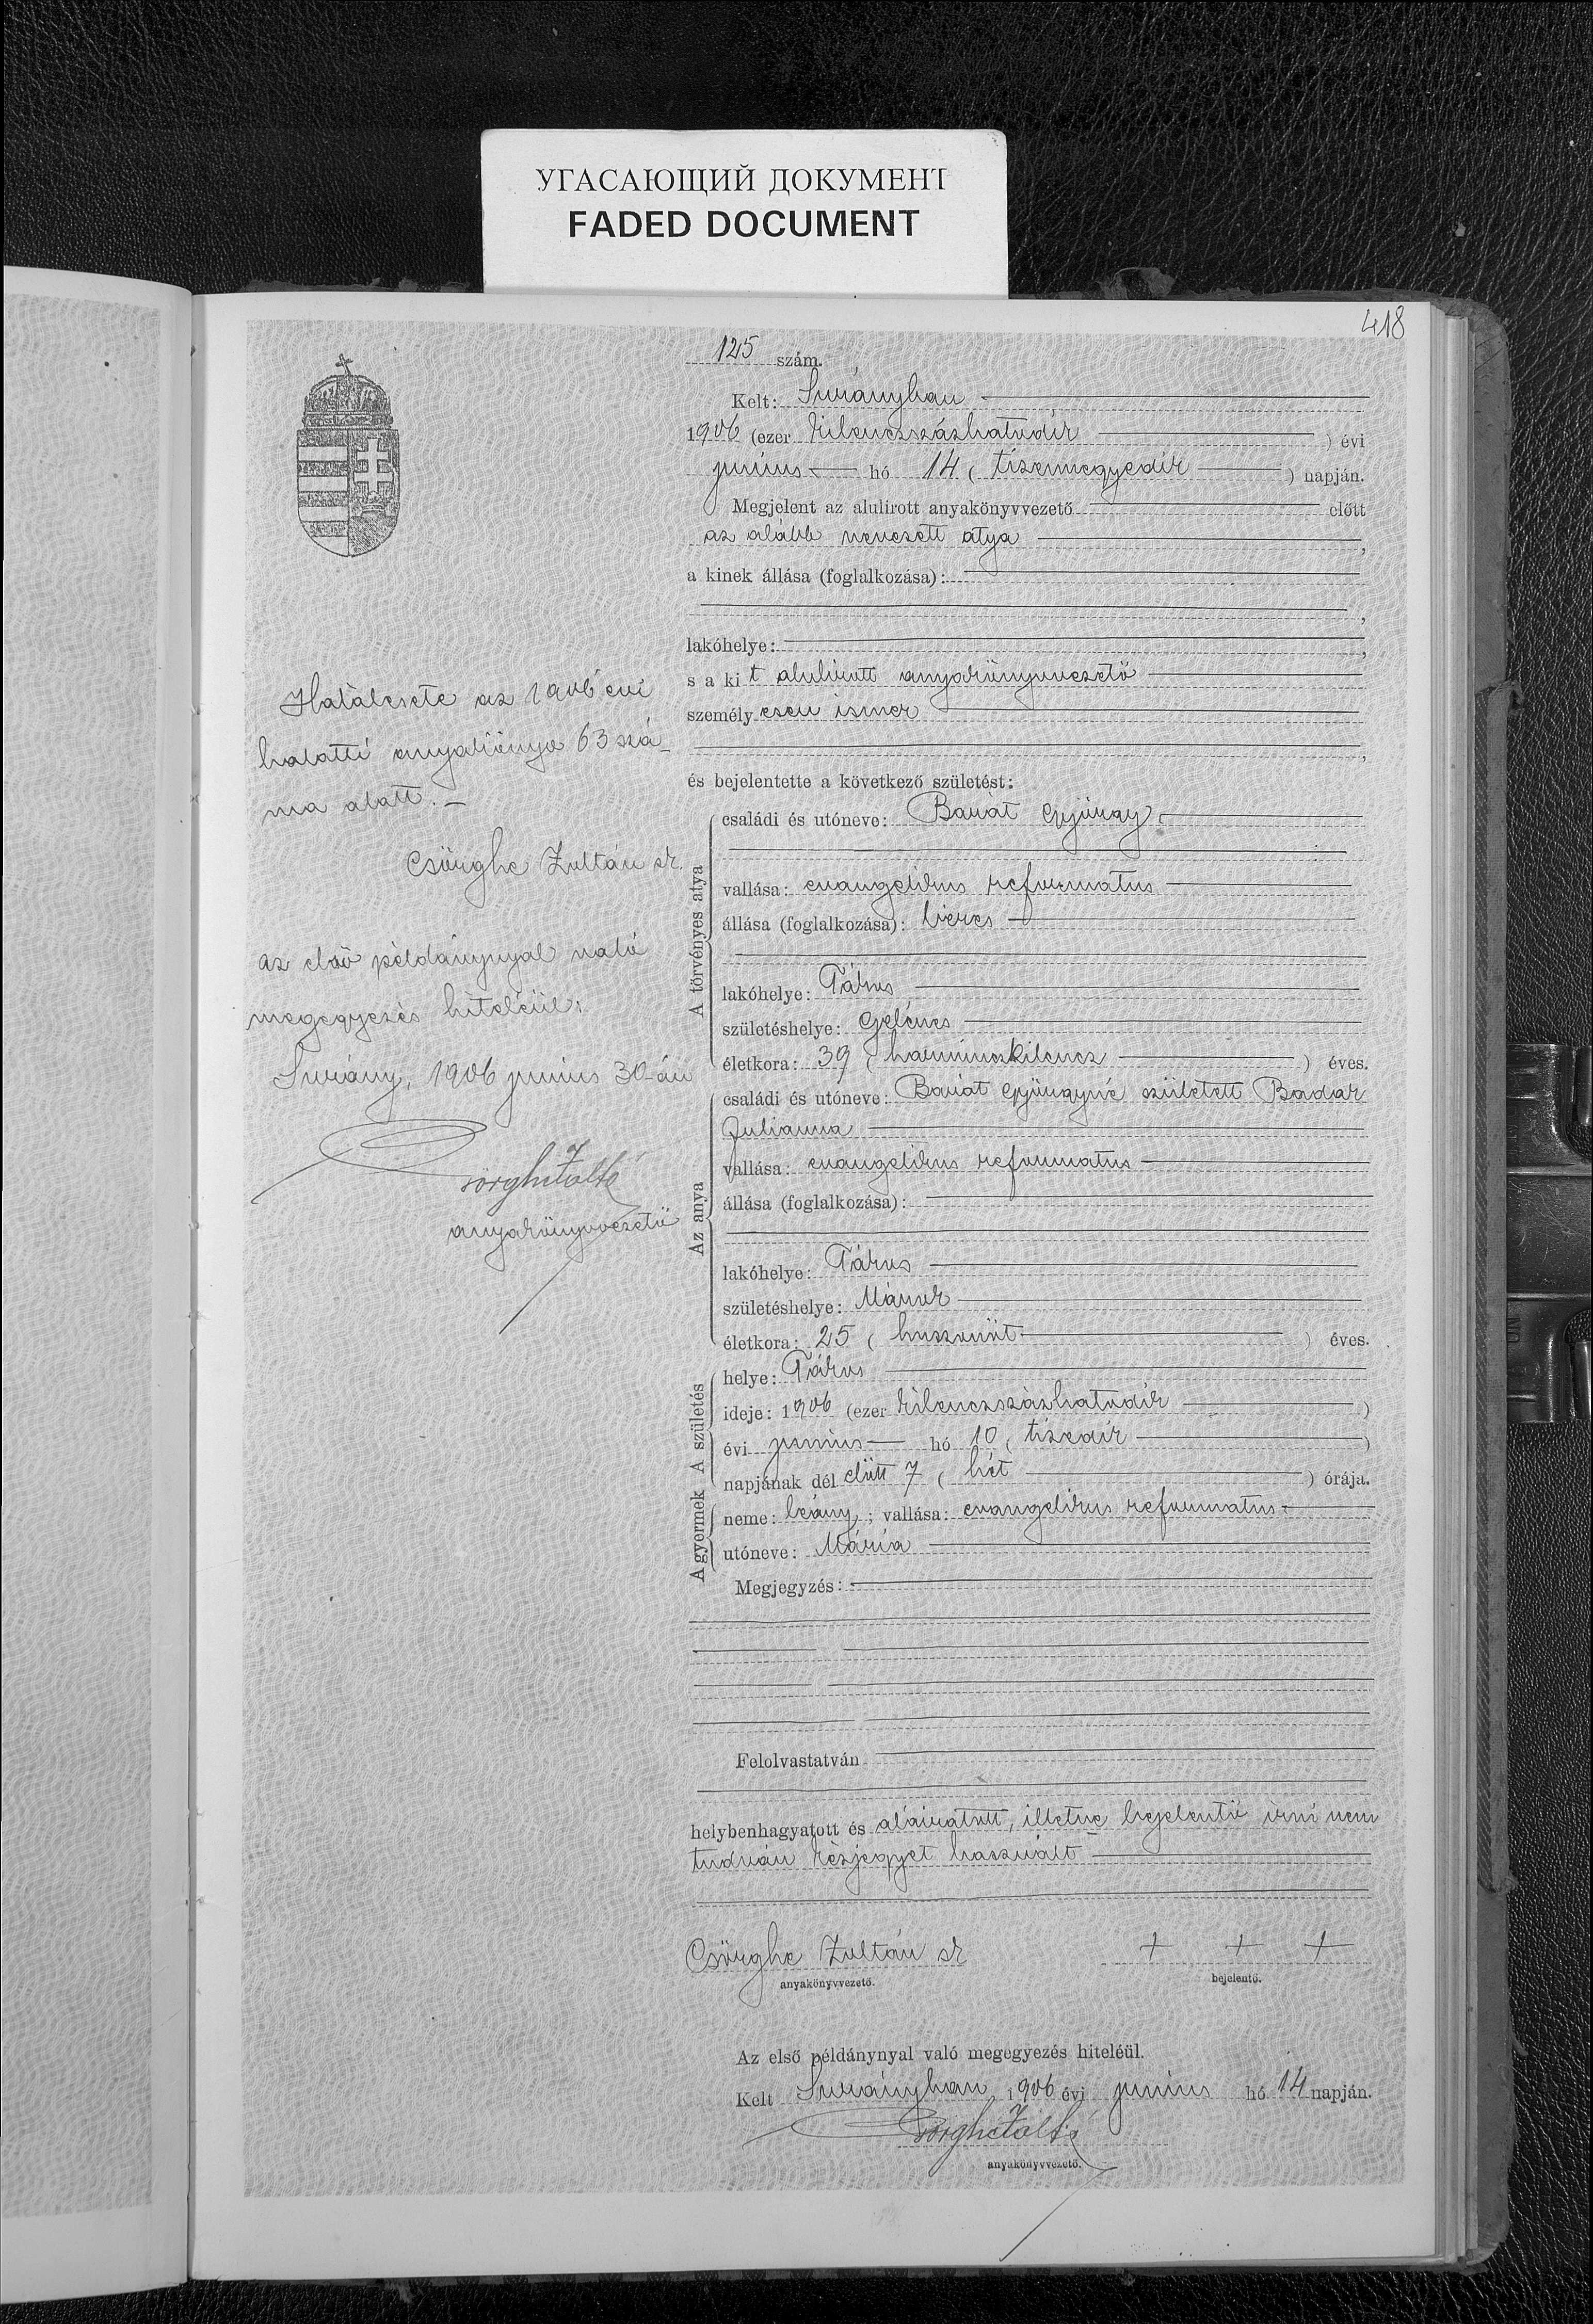 УГАСАЮЩИЙ ДОКУМЕНТ
FADED DOCUMENT
418
125 szám.
Kelt: Surányban
1906 (ezer kilenczszázhatodik) évi
junius hó 14 (tizennegyedik) napján.
Megjelent az alulirott anyakönyvvezető előtt
az alább nevezett atya,
a kinek állása (foglalkozása):
lakóhelye:
s a kit alulírott anyakönyvvezető
személyesen ismer
és bejelentette a következő születést:
A törvényes atya
családi és utóneve: Barát György
vallása: evangelikus reformatus
állása (foglalkozása): béres
lakóhelye: Tákos
születéshelye: Gelénes
életkora: 39 (harminczkilencz) éves.
Az anya
családi és utóneve: Barát Györgyné született Badar
Julianna
vallása: evangelikus reformatus
állása (foglalkozása):
lakóhelye: Tákos
születéshelye:
életkora: 25 (huszonöt) éves.
A születés
helye: Tákos
ideje: 1906 (ezer kilenczszázhatodik)
évi junius hó 10 (tizedik)
napjának dél előtt 7 (hét) órája.
A gyermek
neme: leány; vallása: evangelikus reformatus
utóneve: Mária
Megjegyzés:
Felolvastatván
helybenhagyatott és aláiratott, illetve bejelentő irni nem
tudván kézjegyet használt
Csörghe Zoltán sk
anyakönyvvezető.
+ + +
bejelentő.
Az első példánynyal való megegyezés hiteléül.
Kelt Surányban, 1906 évi junius hó 14 napján.
Csörghe Zoltán
anyakönyvvezető.
Halálesete az 1906 évi
halotti anyakönyv 63 szá-
ma alatt. –
Csörghe Zoltán sk.
az első példánynyal való
megegyezés hiteléül:
Surány, 1906 junius 30-án
Csörghe Zoltán
anyakönyvvezető